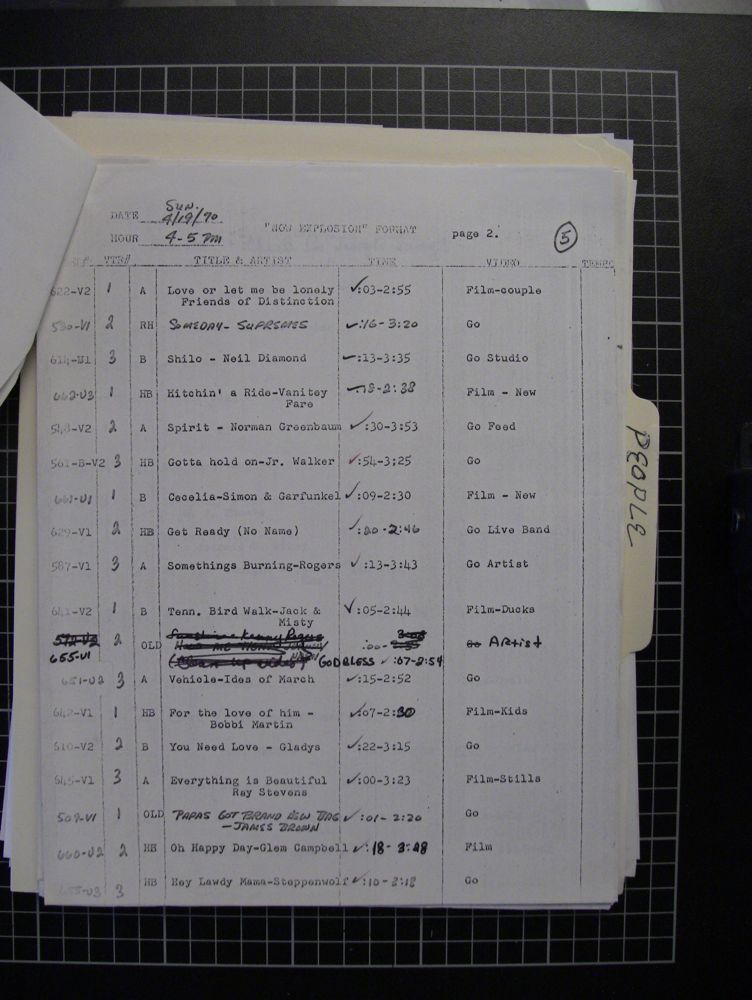 SUN.
DATE 4/19/70
"NOW EXPLOSION" FORMAT page 2. 5
HOUR 4-5 PM
VTR# TITLE & ARTIST TIME VIDEO TEMPO
622-V2 1 A Love or let me be lonely ✓:03-2:55 Film-couple
Friends of Distinction
530-V1 2 RH SOMEDAY- SUPREMES ✓:16-3:20 Go
614-V1 3 B Shilo - Neil Diamond ✓:13-3:35 Go Studio
662-V3 1 HB Hitchin' a Ride-Vanitey ✓:18-2:38 Film - New
Fare
548-V2 2 A Spirit - Norman Greenbaum ✓:30-3:53 Go Feed
561-B-V2 3 HB Gotta hold on-Jr. Walker ✓:54-3;25 Go
661-V1 1 B Cecelia-Simon & Garfunkel ✓:09-2:30 Film - New
629-V1 2 HB Get Ready (No Name) ✓:20-2:46 Go Live Band
587-V1 3 A Somethings Burning-Rogers ✓:13-3:43 Go Artist
641-V2 1 B Tenn. Bird Walk-Jack & ✓:05-2:44 Film-Ducks
Misty
2 OLD :00- Go Artist
655-V1 GOD BLESS ✓:07-2:54
651-V2 3 A Vehicle-Ides of March ✓:15-2:52 Go
642-V1 1 HB For the love of him - ✓:07-2:30 Film-Kids
Bobbi Martin
610-V2 2 B You Need Love - Gladys ✓:22-3:15 Go
645-V1 3 A Everything is Beautiful ✓:00-3:23 Film-Stills
Ray Stevens
509-V1 1 OLD PAPAS GOT BRAND NEW BAG ✓:01-2:20 Go
-JAMES BROWN
660-V2 2 HB Oh Happy Day-Glem Campbell ✓:18-3:28 Film
655-V3 3 HB Hey Lawdy Mama-Steppenwolf ✓:10-2:12 Go
PEOPLE